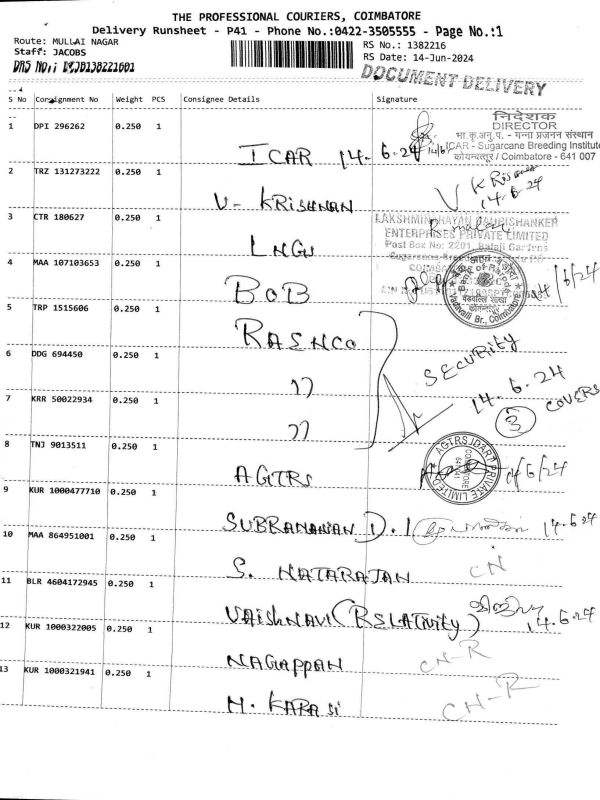 THE PROFESSIONAL COURIERS, COIMBATORE
Delivery Runsheet - P41 - Phone No.:0422-3505555 - Page No.:1
Route: MULLAI NAGAR
Staff: JACOBS
RS No.: 1382216
RS Date: 14-Jun-2024
DOCUMENT DELIVERY
S No Consignment No Weight PCS Consignee Details Signature
1 DPI 296262 0.250 1 ICAR 14.6.24
निदेशक
DIRECTOR
भा.कृ.अनु.प. - गन्ना प्रजनन संस्थान
ICAR - Sugarcane Breeding Institute
कोयम्बत्तूर / Coimbatore - 641 007
2 TRZ 131273222 0.250 1 V- KRISHNAN V Krishnan 14.6.24
3 CTR 180627 0.250 1 LNGU
LAKSHMINARAYAN GAURISHANKER
ENTERPRISES PRIVATE LIMITED
Post Box No: 2201, Balaji Gardens
4 MAA 107103653 0.250 1 BOB
Bank of Baroda
Vadavalli Br., Coimbatore
5 TRP 1515606 0.250 1 RASHCO
6 DDG 694450 0.250 1 ))
7 KRR 50022934 0.250 1 ))
SECURITY
14.6.24
3 COVERS
8 TNJ 9013511 0.250 1 AGTRS
9 KUR 1000477710 0.250 1 SUBRAMANIAN D. 14.6.24
10 MAA 864951001 0.250 1 S. NATARAJAN CN
11 BLR 4604172945 0.250 1 VAISHNAVI (RELATIVITY) 14.6.24
12 KUR 1000322005 0.250 1 NAGAPPAN CN-R
13 KUR 1000321941 0.250 1 M. KARASI CN-R